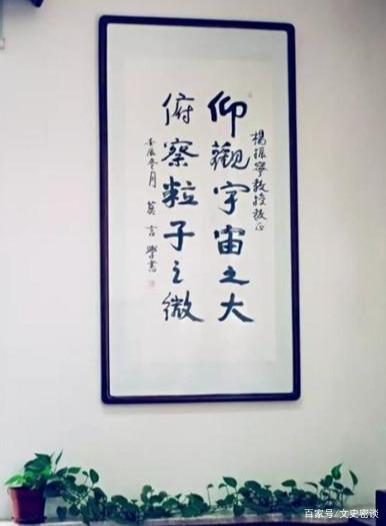 楊振寧教授敎正
仰觀宇宙之大
俯察粒子之微
壬辰冬月 莫言學書
百家号/文史密谈